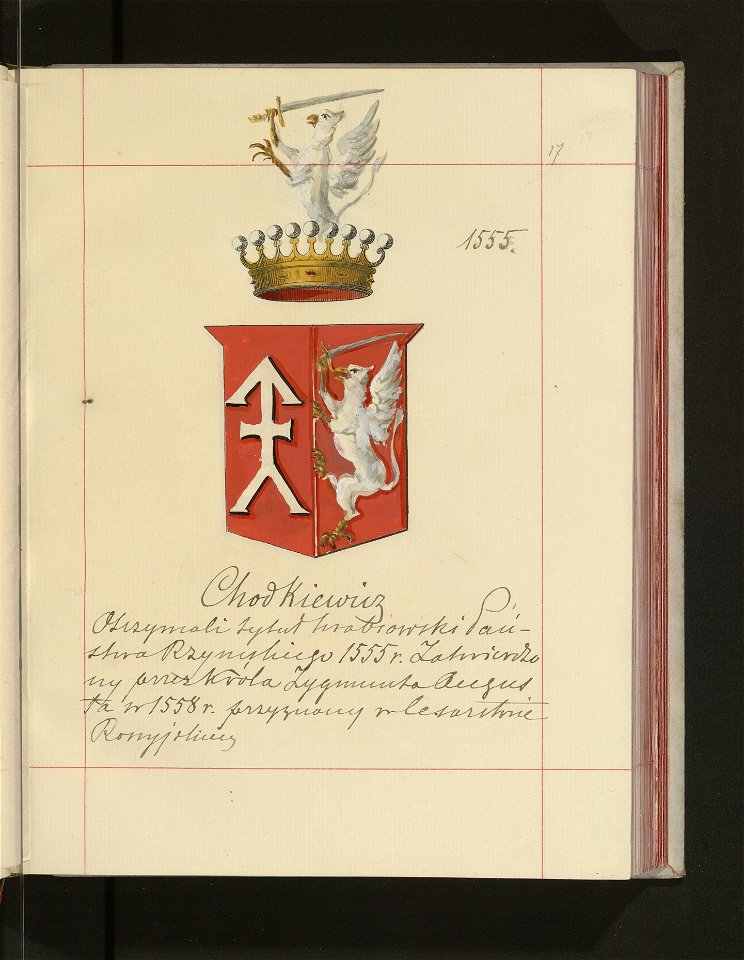 17
1555.
Chodkiewicz
Otrzymali tytuł hrabiowski Pań-
stwa Rzymskiego 1555 r. Zatwierdzo
ny przez Króla Zygmunta Augus
ta w 1558 r. przyznany w Cesarstwie
Rossyjskiey